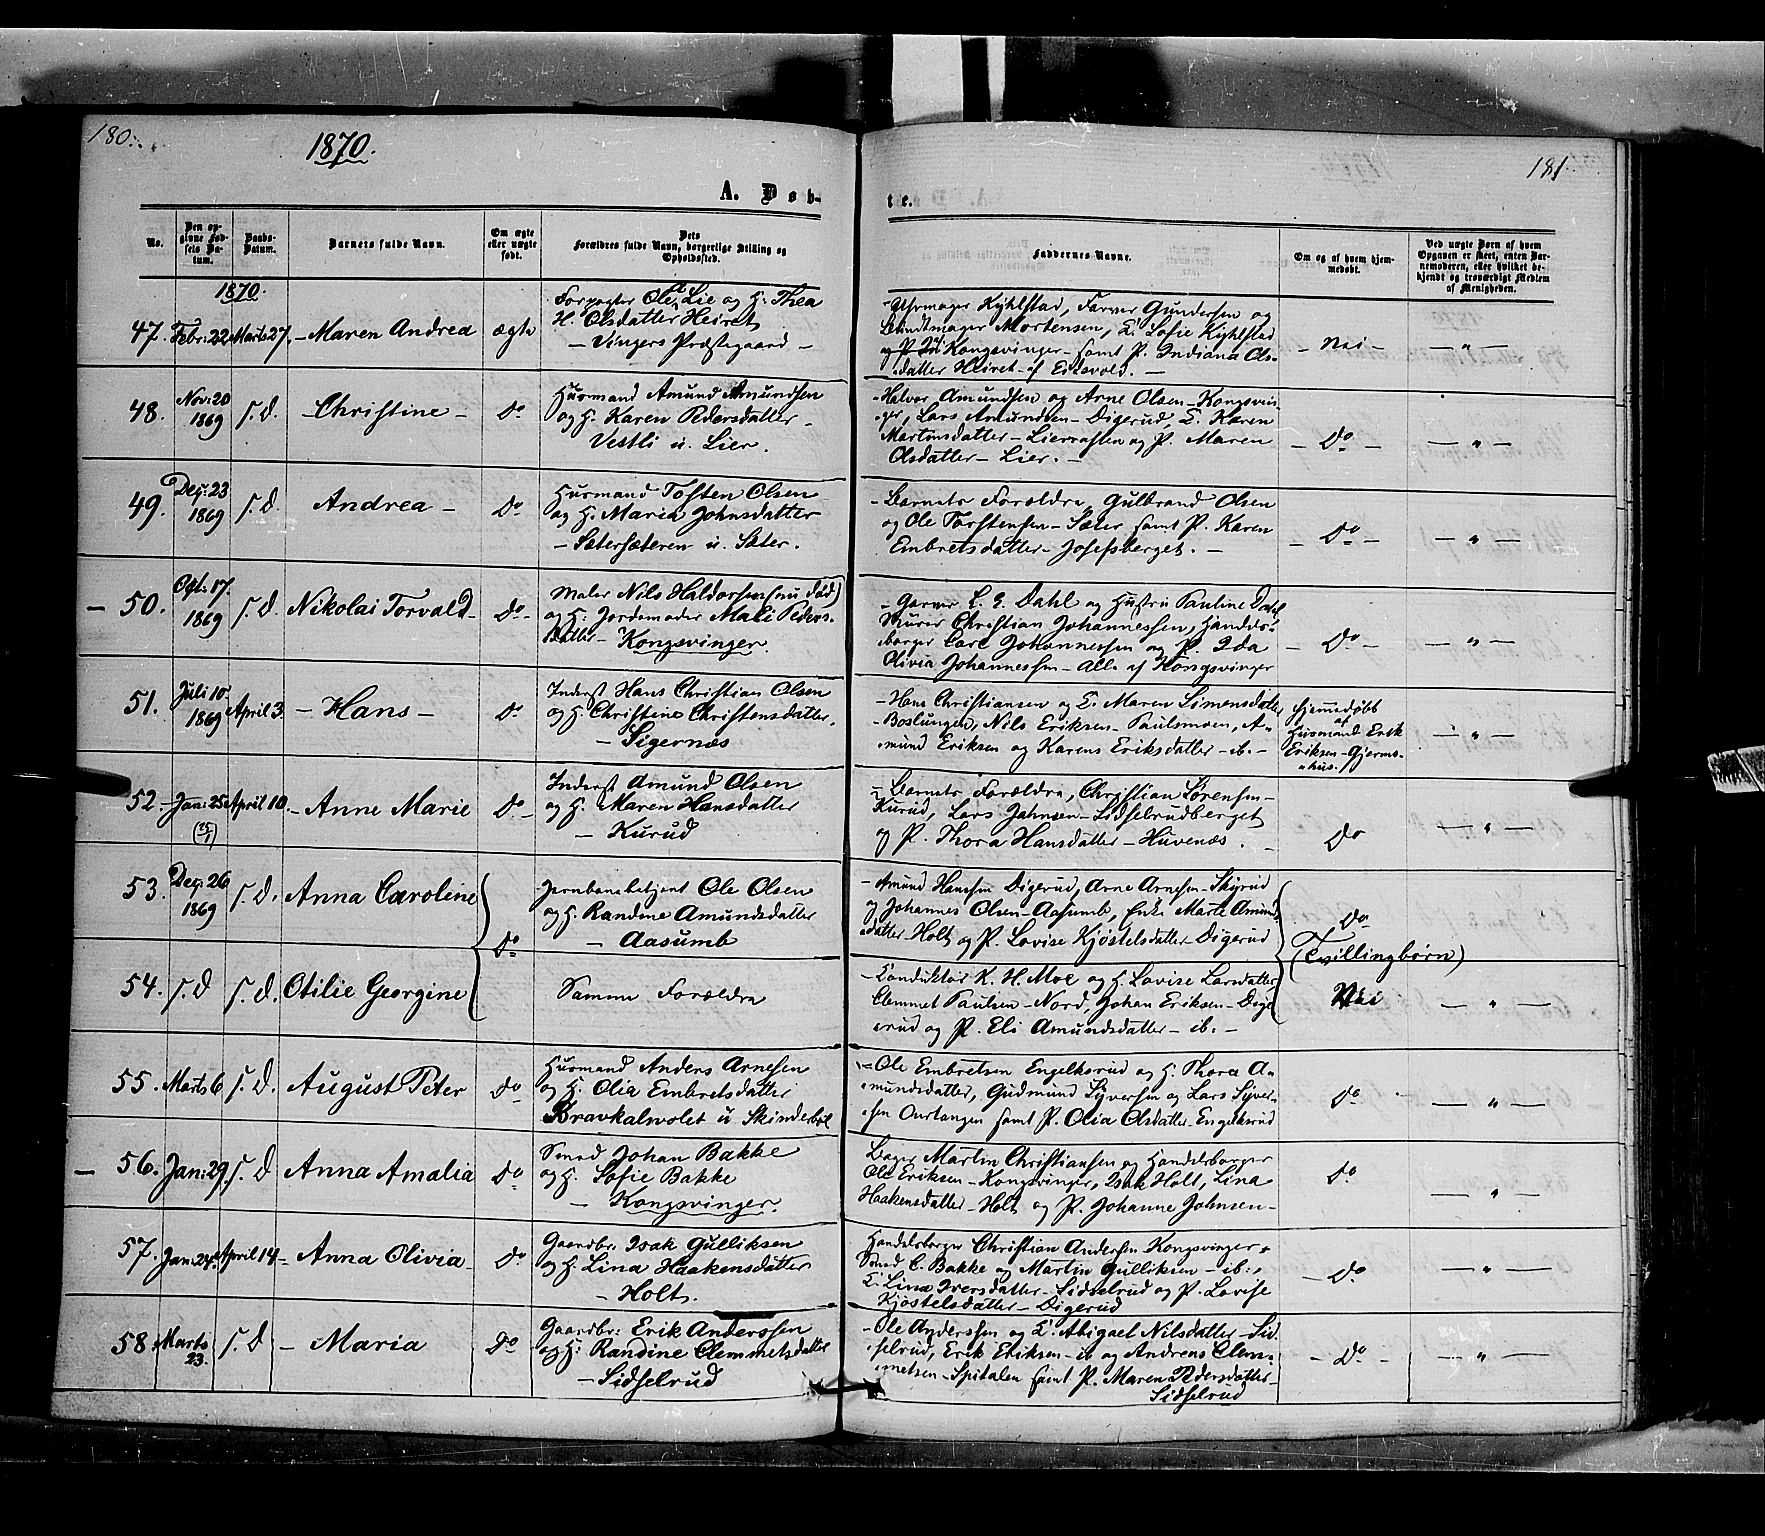 180.
1870.
181
A. Døb-
te.
No.
Den op-
givne Fød-
sels Da-
tum.
Daabs-
Datum.
Barnets fulde Navn.
Om ægte
eller uægte
født.
Dets
Forældres fulde Navn, borgerlige Stilling og
Opholdssted.
Faddernes Navne.
Om og af hvem hjem-
medøbt.
Ved uægte Børn af hvem
Opgaven er skeet, enten Bar-
nemoderen, eller hvilket be-
kjendt og troværdigt Medlem
af Menigheden.
1870.
47. Febr: 22 Marts 27. - Maren Andrea ægte
Forpagter Ole Lie og H: Thea
H. Olsdatter Heiret
- Vingers Præstegaard -
Uhrmager Kyhlstad, Farver Gundersen og
Mortensen, Sofie Kyhlstad
Kongsvinger - samt P. Indiana Ols-
datter Heiret - af Eidsvold. -
- Nei - - " -
48. Nov: 20
1869 s. d. Christine - do
Husmand Amund Amundsen
og H. Karen Pedersdatter -
Vestli u. Lier.
- Halvor Amundsen og Arne Olsen - Kongsvin-
ger, Lars Amundsen - Digerud, E. Karen
Martinsdatter - Liermasten og P. Maren
Olsdatter - Lier. -
- Do - - " -
49. Dez: 23
1869 s. d. Andrea - do
Husmand Tosten Olsen
og H. Maria Johnsdatter
- Sætersæteren u. Sæter.
- Barnets Forældre, Gulbrand Olsen
og Ole Torstensen - Sæter samt P. Karen
Embretsdatter - Josefsberget. -
- Do - - " -
- 50. Oct: 17.
1869 s. d. Nikolai Torvald - Do -
Maler Nils Haldorsen (nu død)
og H. Jordemoder Mali Peders-
datter - Kongsvinger.
- Garver L. E. Dahl og Hustru Pauline Dahl
Murer Christian Johannessen, Handels-
borger Carl Johannessen og P. Ida
Olivia Johannessen - Alle af Kongsvinger
- Do - - " -
51. Juli 10
1869 April 3 - Hans - do
Inderst Hans Christian Olsen
og H. Christine Christensdatter.
- Sigernæs
- Hans Christiansen og E. Maren Simensdatter
- Boslungen, Nils Eriksen - Paulsmoen, A-
mund Eriksen og Karens Eriksdatter - ib. -
Hjemmedøbt
af
Husmand Erik
Eriksen - Gjerms-
hus. - " -
52. - Jan: 25 April 10 - Anne Marie Do -
(25/1)
Inderst Amund Olsen
og H. Maren Hansdatter
- Kurud
- Barnets Forældre, Christian Sørensen -
Kurud, Lars Johnsen - Sidselrudberget
og P. Thora Hansdatter - Huvenæs. -
Do - " -
53. Dez: 26
1869 s. d. Anna Caroline
Do
Jernbanebetjent Ole Olsen
og H. Randine Amundsdatter
- Aasumb
- Amund Hanssen Digerud, Arne Arnesen - Skyrud
og Johannes Olsen - Aasumb, Enke Marte Amunds-
datter - Holt og P. Lovise Kjøstelsdatter - Digerud
Do
(Tvillingbørn)
54. s. d s. d. Otilie Georgine
Samme Forældre
- Konduktør K. H. Moe og H. Lovise Larsdatter
Clemmet Paulsen - Nord, Johan Eriksen - Dige-
rud og P. Eli Amundsdatter - ib. -
Nei - " -
55. Marts 6 s. d. August Peter do
Husmand Anders Arnesen
og H. Olia Embretsdatter
Bravkalvolet u Skinderbøl
- Ole Embretsen Engelksrud og H. Thora A-
mundsdatter, Gudmund Syversen og Lars Syver-
sen Ourtangen samt P. Olia Olsdatter - Engelksrud
do - " -
- 56. Jan: 29. s. d Anna Amalia Do
Smed Johan Bakke
og H. Sofie Bakke
- Kongsvinger.
Bager Martin Christiansen og Handelsborger
Ole Eriksen - Kongsvinger, Isak Holt, Lina
Haakensdatter - Holt og P. Johanne Johnsen -
do - " -
57. Jan: 24. April 14 - Anna Olivia - do
Gaardbr. Isak Gulliksen
og H. Lina Haakensdatter
- Holt.
Handelsborger Christian Andersen Kongsvinger,
Smed C. Bakke og Martin Gulliksen - ib:,
E. Lina Iversdatter - Sidselrud og P. Lovise
Kjøstelsdatter - Digerud
- do - " -
58 Marts
23. s. d - Maria Do
Gaardbr: Erik Anderssen
og H: Randine Clemmetsdatter
- Sidselrud
- Ole Anderssen og E. Abigael Nilsdatter - Sid-
selrud, Erik Eriksen - ib og Andreas Clem-
metsen - Spitalen samt P. Maren Pedersdatter -
Sidselrud
- do - - " -